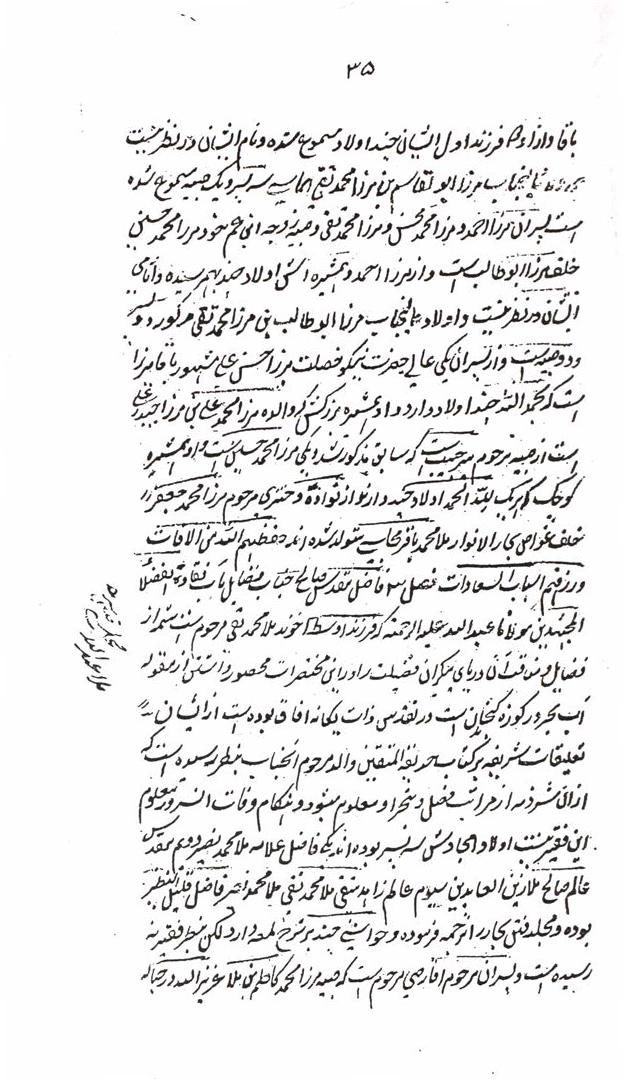 ۳۵
فرزند اول ایشان چند اولاد مسموع شده و نام ایشان در نظر نیست
میرزا ابوالقاسم بن میرزا محمد تقی الماسی سه پسر و یک صبیه مسموع شده
است پسران میرزا احمد و میرزا محمد و میرزا محمد تقی و صبیه زوجه ابن عم خود میرزا محمد حسین
خلف میرزا ابوطالب است و از میرزا احمد و همشیره اش اولاد چند بهم رسیده و اسامی
ایشان در نظر نیست و اولاد عالیجناب میرزا ابوطالب بن میرزا محمد تقی مزکور دو پسر
و دو صبیه است و از پسران یکی عالی حضرت نیکو خصلت میرزا حسن علی مشهور باقا میرزا
است که بحمد الله چند اولاد دارد و همشیره بزرگش که والده میرزا محمد علی بن میرزا حیدر علی
است از صبیه مرحوم است که سابق مذکور شد و یکی میرزا محمد حسین است و همشیره
کوچک که هر یک لله الحمد اولاد چند دارند و از نواده دختری مرحوم میرزا محمد جعفر
خلف غواص بحار الانوار ملا محمد باقر مجلسی متولد شده اند حفظهم الله من الافات
و رزقهم اسباب السعادات فصل ۳ فاضل مقدس صالح جناب فضایل ماب نقاوة الفضلا
المجتهدین مولانا عبد الله علیه الرحمه که فرزند اوسط اخوند ملا محمد تقی مرحوم است شمه از
فضایل و مناقب آن دریای بیکران فضیلت را در این مختصرات محصور داشتن از مقوله
آب بحر در کوزه گنجاندن است در تقدس ذات یگانه افاق بوده است از ایشان
تعلیقات شریفه بر کتاب حدیقة المتقین والد مرحوم آنجناب بنظر رسیده است که
از ان شرذمه از مراتب فضل و تبحر او معلوم میشود و هنگام وفات آن سرور معلوم
این فقیر نیست اولاد امجادش سه پسر بوده اند یکی فاضل علامه ملا محمد نصیر دویم مقدس
عالم صالح ملا زین العابدین سیوم عالم زاهد متقی ملا محمد تقی ملا محمد نصیر فاضل قلیل النظیر
بوده و مجلد فتن بحار را ترجمه فرموده و حواشی چند بر شرح لمعه دارد لکن بنظر فقیر نه
رسیده است و پسران مرحوم اقا رضی مرحوم است که صبیه میرزا محمد کاظم بن ملا عزیز الله در حباله